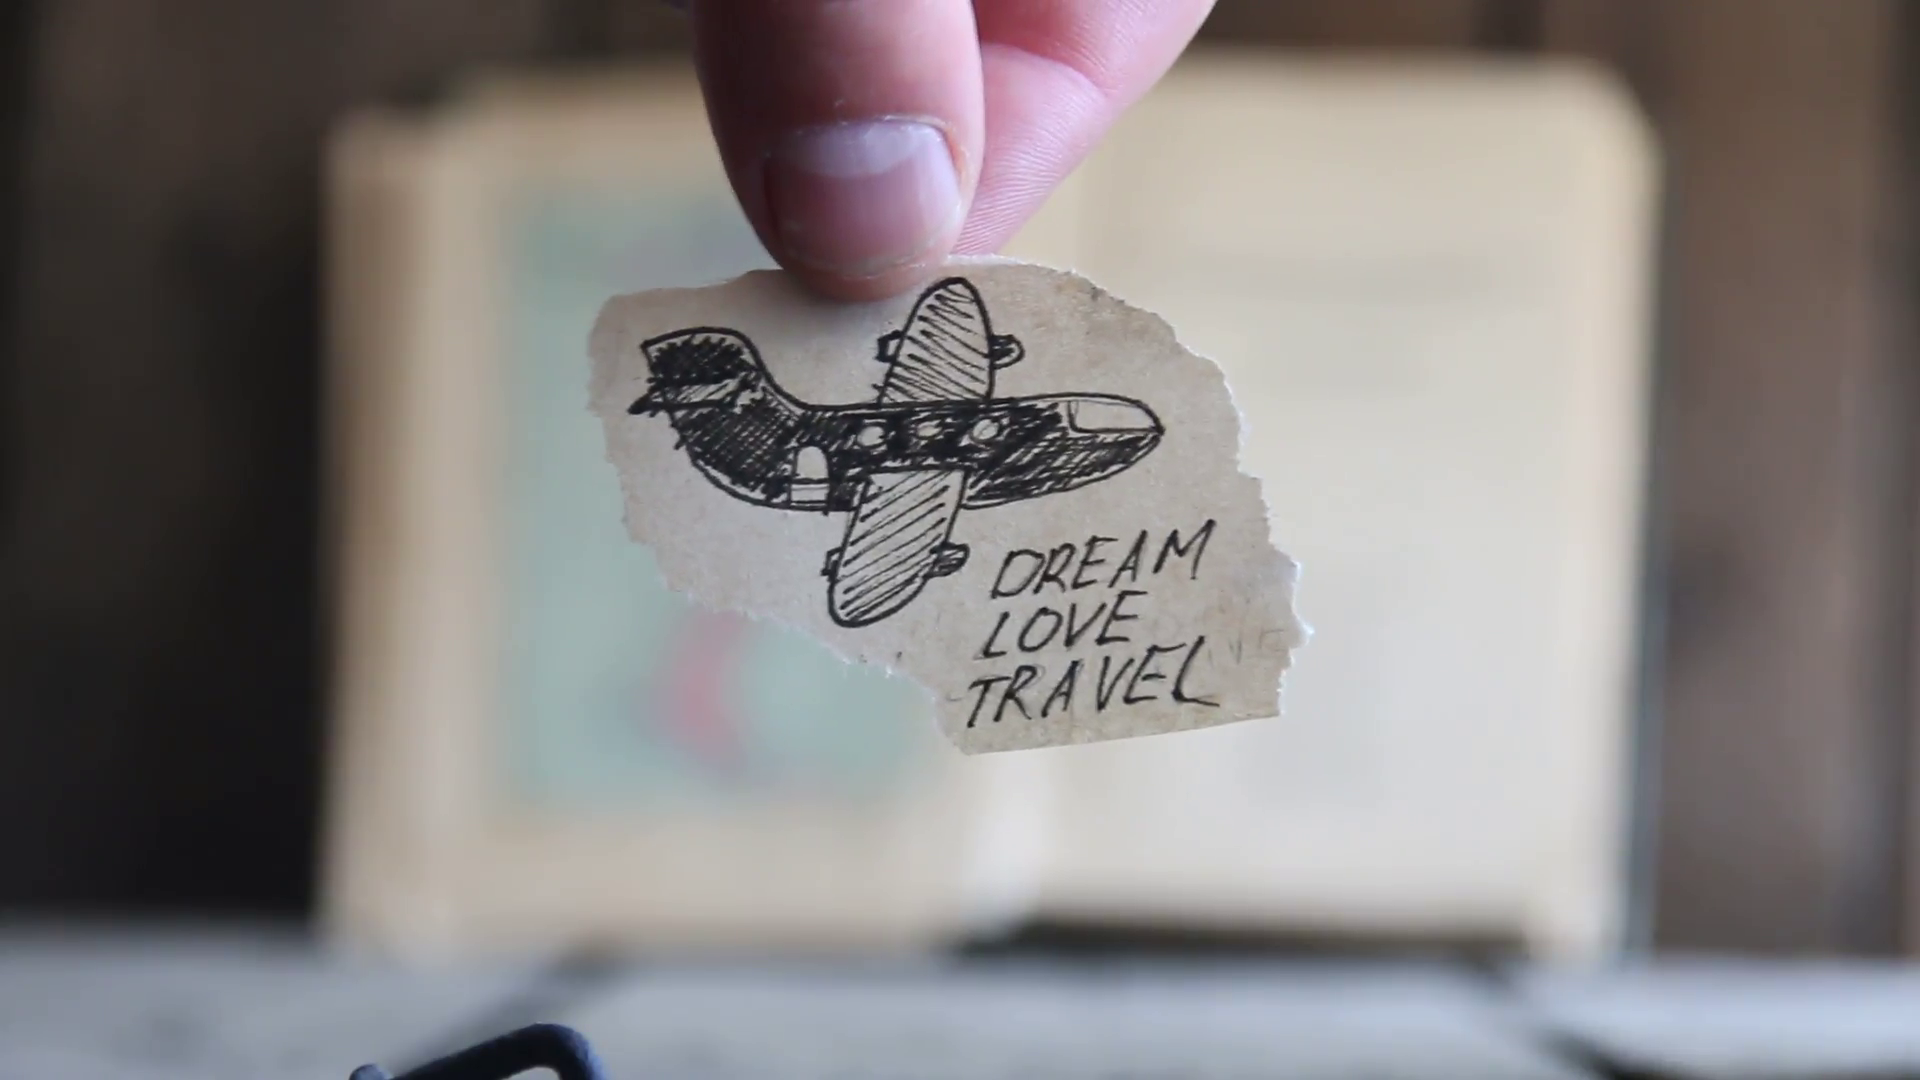 DREAM
LOVE
TRAVEL